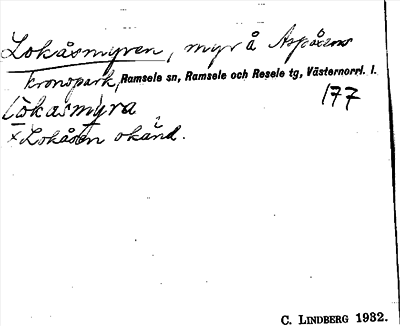 Lokåsmyren, myr å Aspåsens
kronopark, Ramsele sn, Ramsele och Resele tg, Västernorrl. l.
177
lòkasmýra
× Lokåsen okänd.
C. LINDBERG 1932.